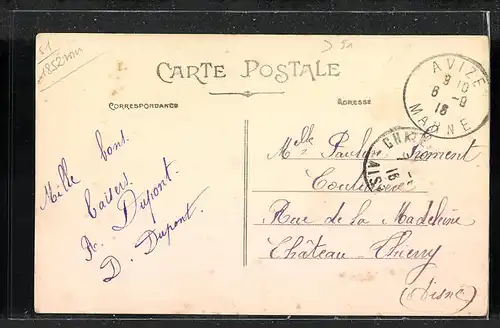 51
1852mm
> 51
CARTE POSTALE
CORRESPONDANCE
ADRESSE
AVIZE
9 10
6 -9
16
MARNE
CHAT
16
AISN
Mille bons
baisers
A. Dupont.
D. Dupont.
Melle Pauline Froment
Couturière
Rue de la Madeleine
Château-Thierry
(Aisne)